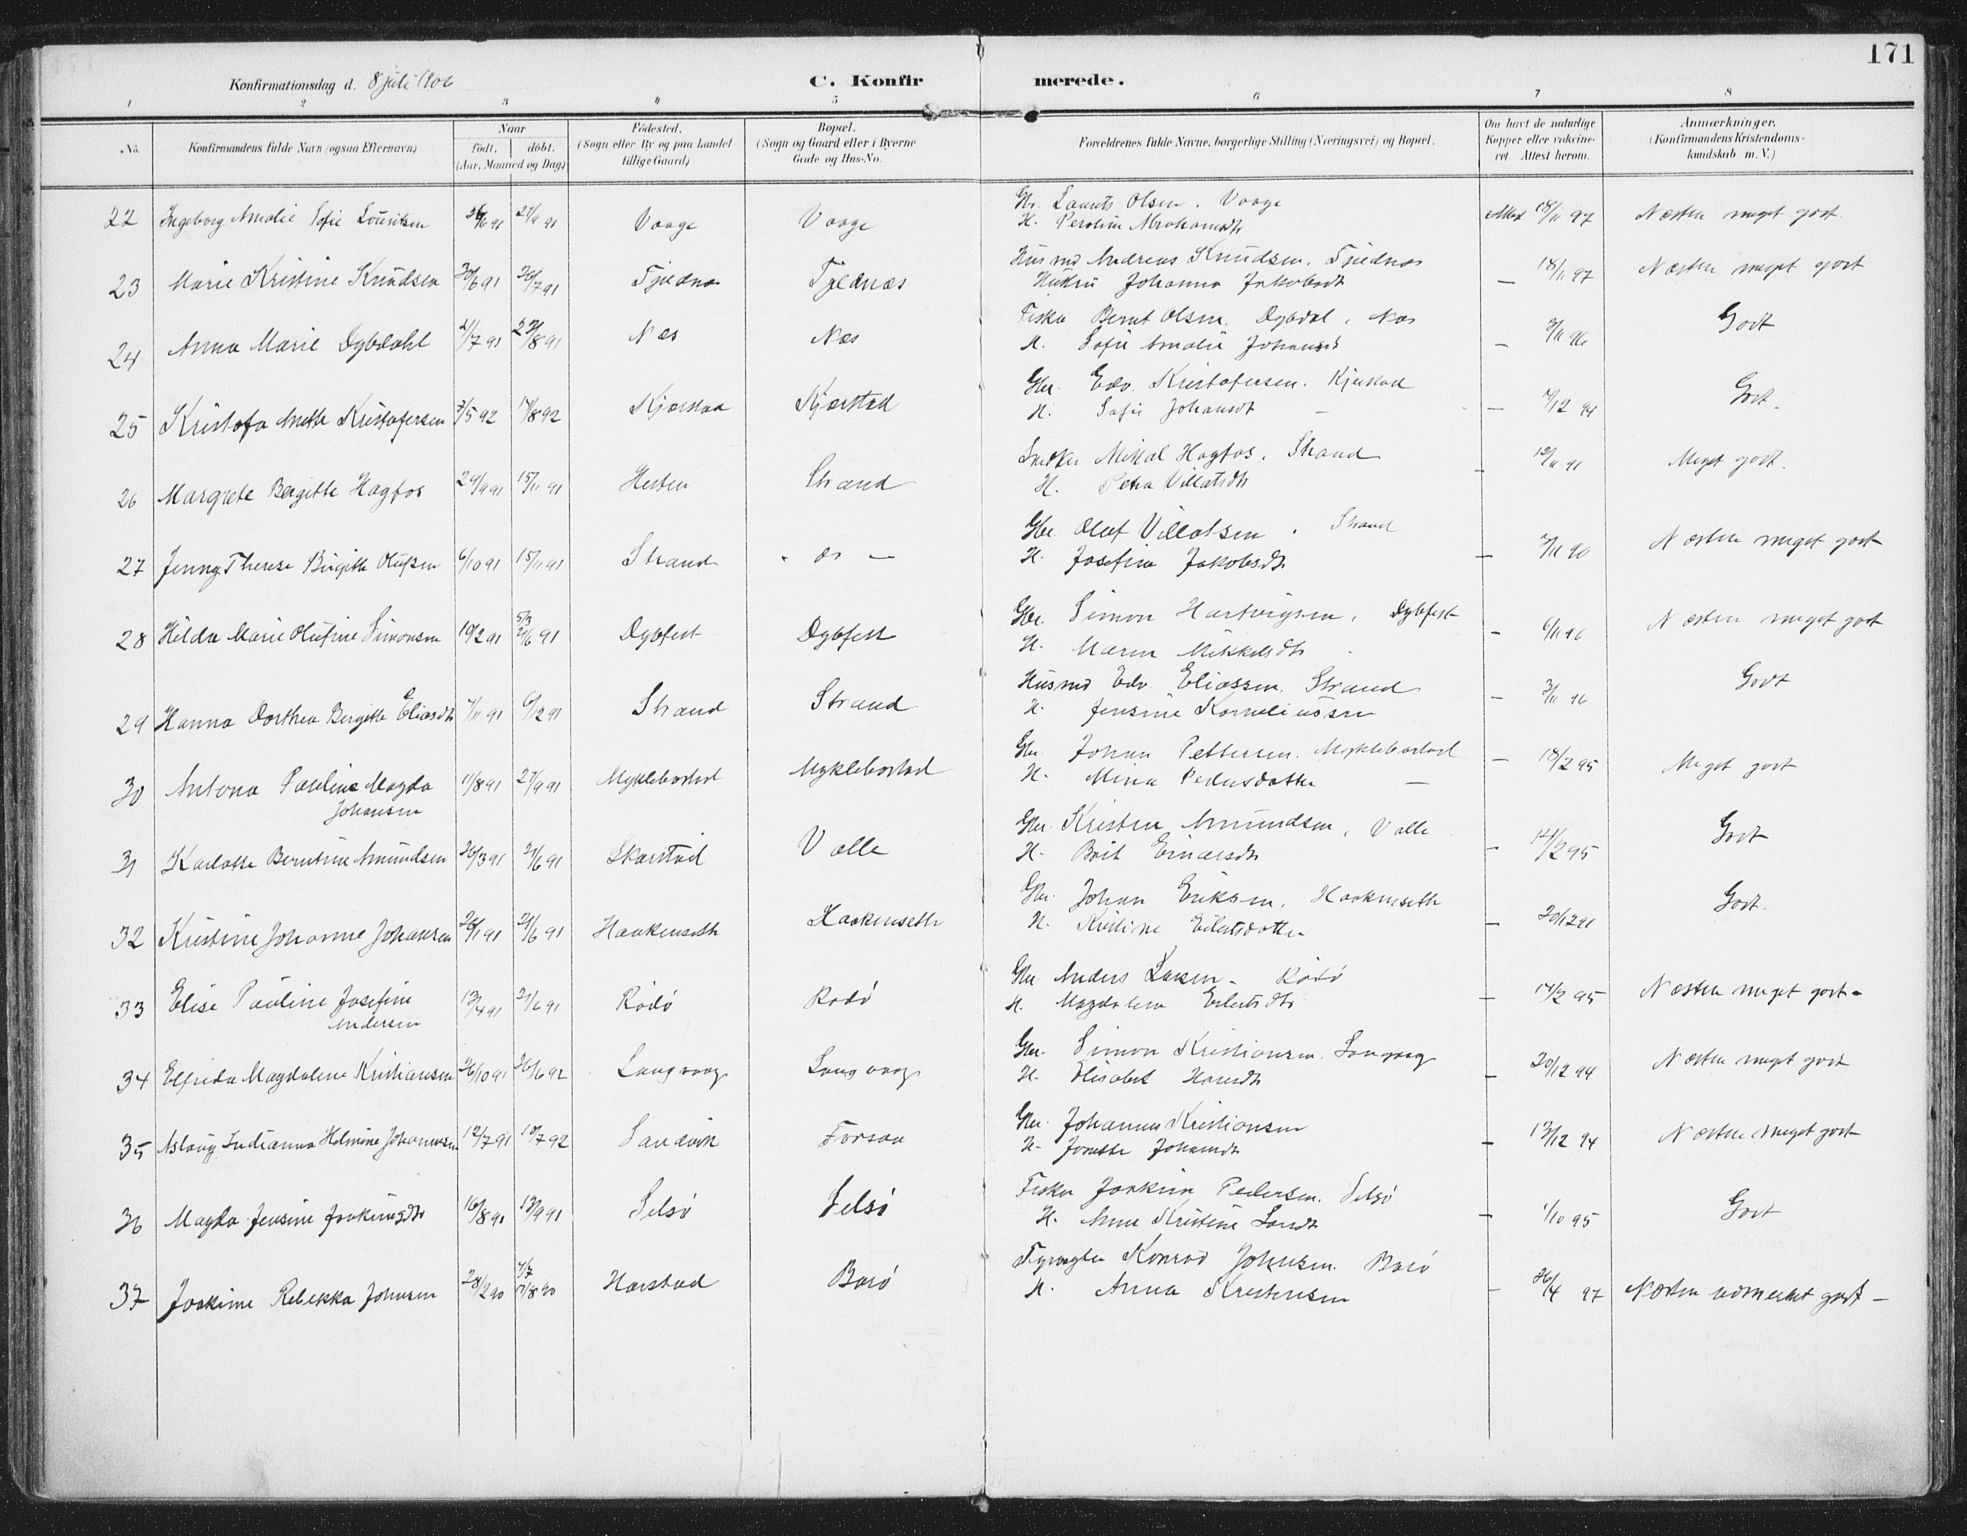 171
Konfirmationsdag d. 8 juli 1906
C. Konfirmerede.
1 2 3 4 5 6 7 8
No. Konfirmandens fulde Navn (ogsaa Efternavn). Naar födt. döbt. (Aar, Maaned og Dag) Födested. (Sogn eller By og paa Landet tillige Gaard) Bopæl. (Sogn og Gaard eller i Byerne Gade og Hus-No. Forældrenes fulde Navne, borgerlige Stilling (Næringsvei) og Bopæl. Om havt de naturlige Kopper eller vakcineret Attest herom. Anmærkninger. (Konfirmandens Kristendomskundskab m. V.)
22 Ingeborg Amalie Sofie Louritsen 27/9 91 Vaage Vaage Gbr. Laurits Olsen. Vaage 18/11 97 Næsten meget godt.
H. Peroline Abrahamsdt
23 Marie Kristine Knudsen 30/6 91 26/7 91 Tjeldnes Tjeldnæs Husmd Andreas Knudsen. Tjeldnæs — 18/11 97 Næsten meget godt
Hustru Johanna Jakobsdt
24 Anna Marie Dybdahl 2/7 91 23/8 91 Næs Næs Fisker Bernt Olsen Dybdal. Næs — 3/11 96 Godt
H. Sofie Amalie Johansdt
25 Kristofa Anette Kristofersen 3/5 92 14/8 92 Kjærstad Kjærstad Gbr. Edv. Kristofersen. Kjerstad — 14/12 94 Godt.
H. Sofie Johansdt —
26 Margrete Bergitte Hagfos 29/9 91 15/11 91 Hesten Strand Snekker Mikal Hagfos. Strand — 12/11 91 Meget godt.
H. Petra Villatsdt
27 Jenny Therese Birgitte Olufsen 6/10 91 15/11 91 Strand - " - Gbr. Oluf Villatsen. Strand — 3/11 90 Næsten meget godt
H. Josefine Jakobsdt
28 Hilda Marie Olufine Simonsen 10/2 91 5/3 21/6 91 Dybfest Dybfest Gbr Simon Hartvigsen. Dybfest — 6/11 96 Næsten meget godt
H. Maren Mikkelsdt
29 Hanna Dorthea Bergitte Eliasdt 7/11 91 6/12 91 Strand Strand Husmd Edv Eliassen. Strand — 3/11 96 Godt
H. Jensine Korneliussen
30 Antona Pauline Magda 11/8 91 27/9 91 Myklebostad Myklebostad Gbr Johan Pettersen. Myklebostad — 18/2 95 Meget godt
Johansen H. Mina Pedersdatter —
31 Karlotte Berntine Amundsen 26/3 91 21/6 91 Skarstad Valle Gbr. Kristen Amundsen. Valle — 14/2 95 Godt
H. Brit Einarsdt
32 Kristine Johanne Johansen 26/1 91 21/6 91 Haakenseth Haakenseth Gbr. Johan Eriksen. Haakenseth — 20/12 91 Godt.
H. Kristine Eilertsdatter
33 Elise Pauline Josefine 12/4 91 21/6 91 Rödö Rödö Gbr Anders Larsen. Rödö — 14/2 95 Næsten meget godt -
Andersen H. Magdalena Eilertsdt
34 Elfrida Magdalene Kristiansen 26/10 91 26/6 92 Langvaag Langvaag Gbr. Simon Kristiansen. Langvaag — 20/12 94 Næsten meget godt
H. Elisabet Hansdt
35 Aslaug Indianna Helmine Johannessen 12/7 91 10/7 92 Sandvik Forsaa Gbr. Johannes Kristiansen — 13/12 94 Næsten meget godt
H. Jonette Johansdt
36 Magda Jensine Joakimsdt 16/8 91 13/9 91 Selsö Selsö Fisker Joakim Pedersen. Selsö — 1/10 95 Godt
H. Anne Kristine Larsdt
37 Joakime Rebekka Johnsen 28/2 90 4/7 17/8 90 Harstad Barö Fyrvogter Konrad Johnsen Barö — 26/4 97 Næsten udmerket godt -
H. Anna Kristensen